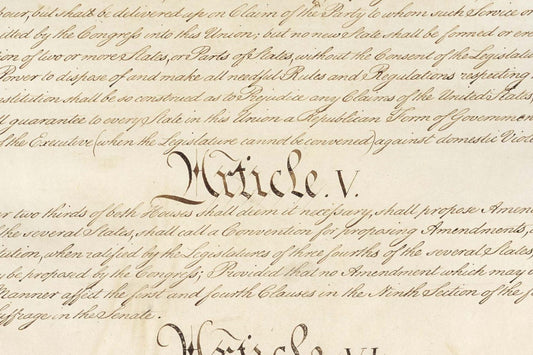 our, but shall be delivered up on Claim of the Party to whom such Service or
itted by the Congress into this Union; but no new State shall be formed or ere
ion of two or more States, or Parts of States, without the Consent of the Legislatu
Power to dispose of and make all needful Rules and Regulations respecting
stitution shall be so construed as to Prejudice any Claims of the United States,
ll guarantee to every State in this Union a Republican Form of Government
of the Executive (when the Legislature cannot be convened) against domestic Viole
Article. V.
r two thirds of both Houses shall deem it necessary, shall propose Amen
the several States, shall call a Convention for proposing Amendments,
itution, when ratified by the Legislatures of three fourths of the several States,
y be proposed by the Congress; Provided that no Amendment which may
Manner affect the first and fourth Clauses in the Ninth Section of the f
uffrage in the Senate.
Article. VI.